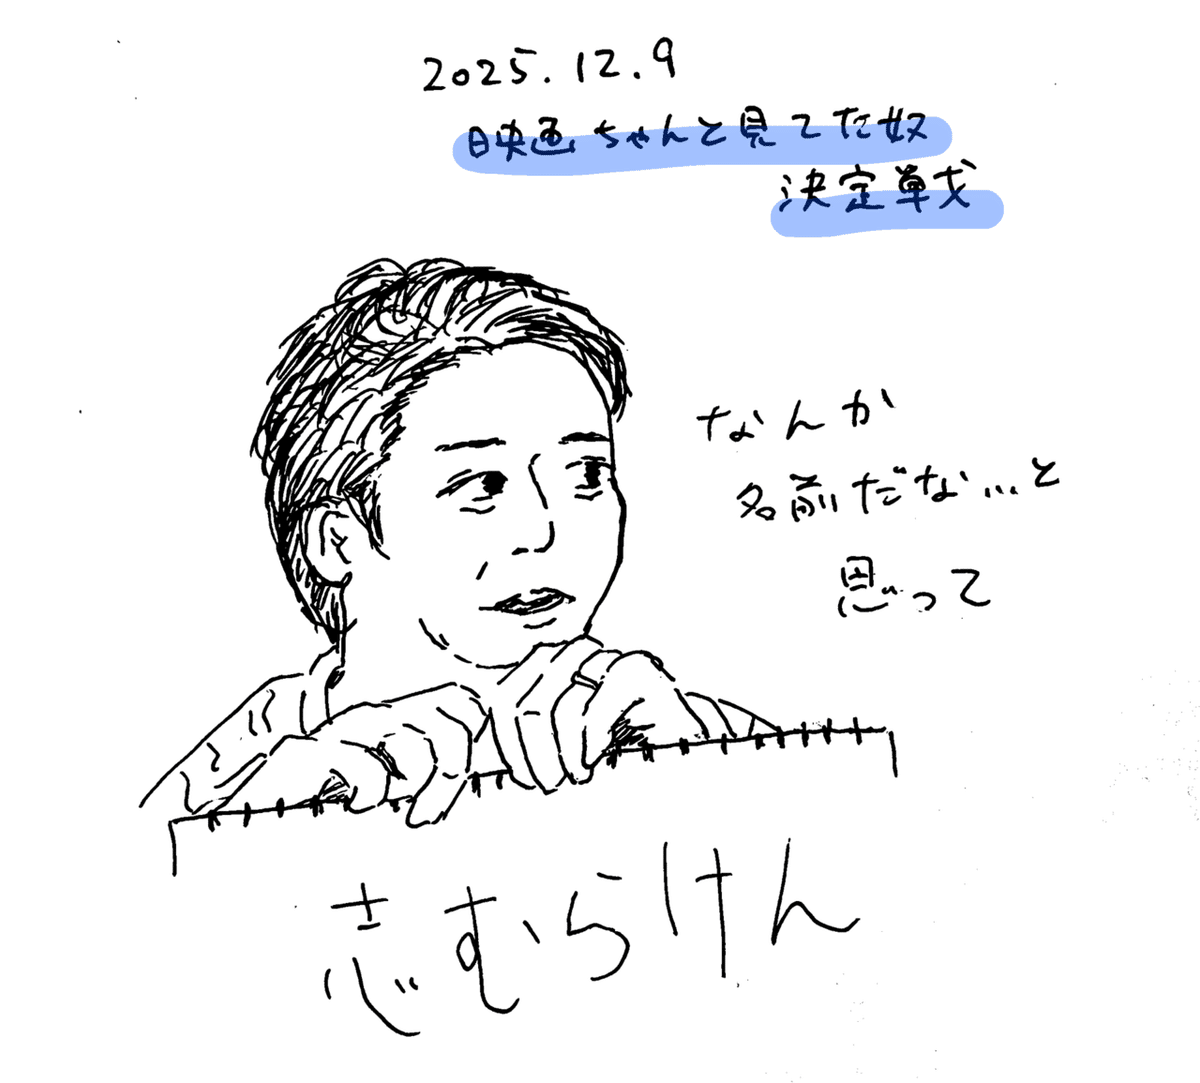 2025.12.9
映画ちゃんと見てた奴
決定戦
なんか
名前だな...と
思って
志むらけん